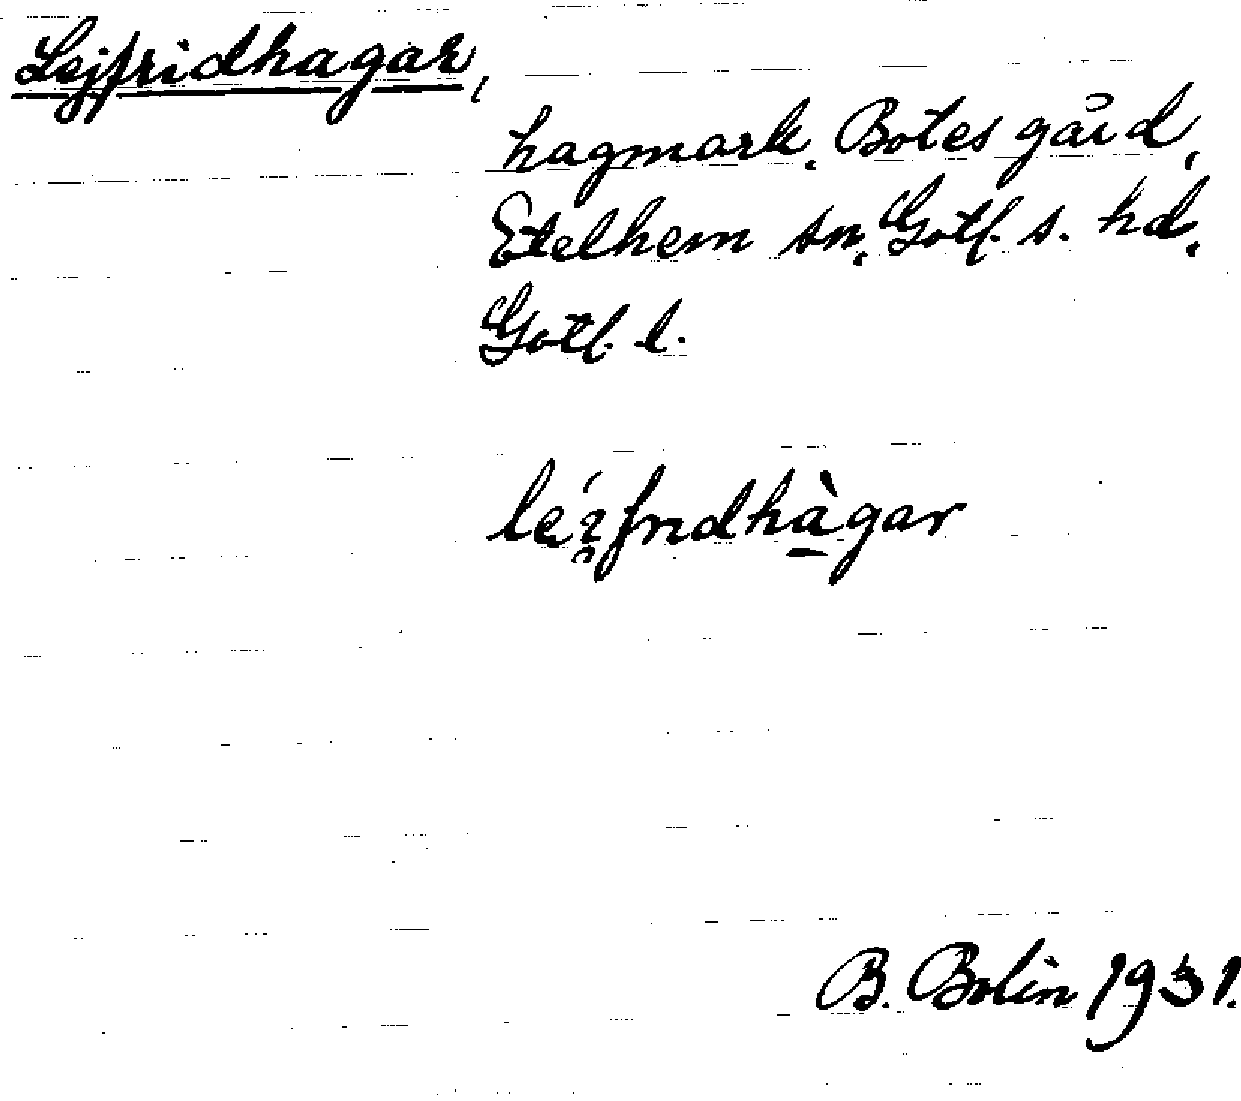 Lejfridhagar,
hagmark. Botes gård,
Etelhem sn. Gotl. s. hd.
Gotl. l.
léi̯fridhàgar
B. Bolin 1931.